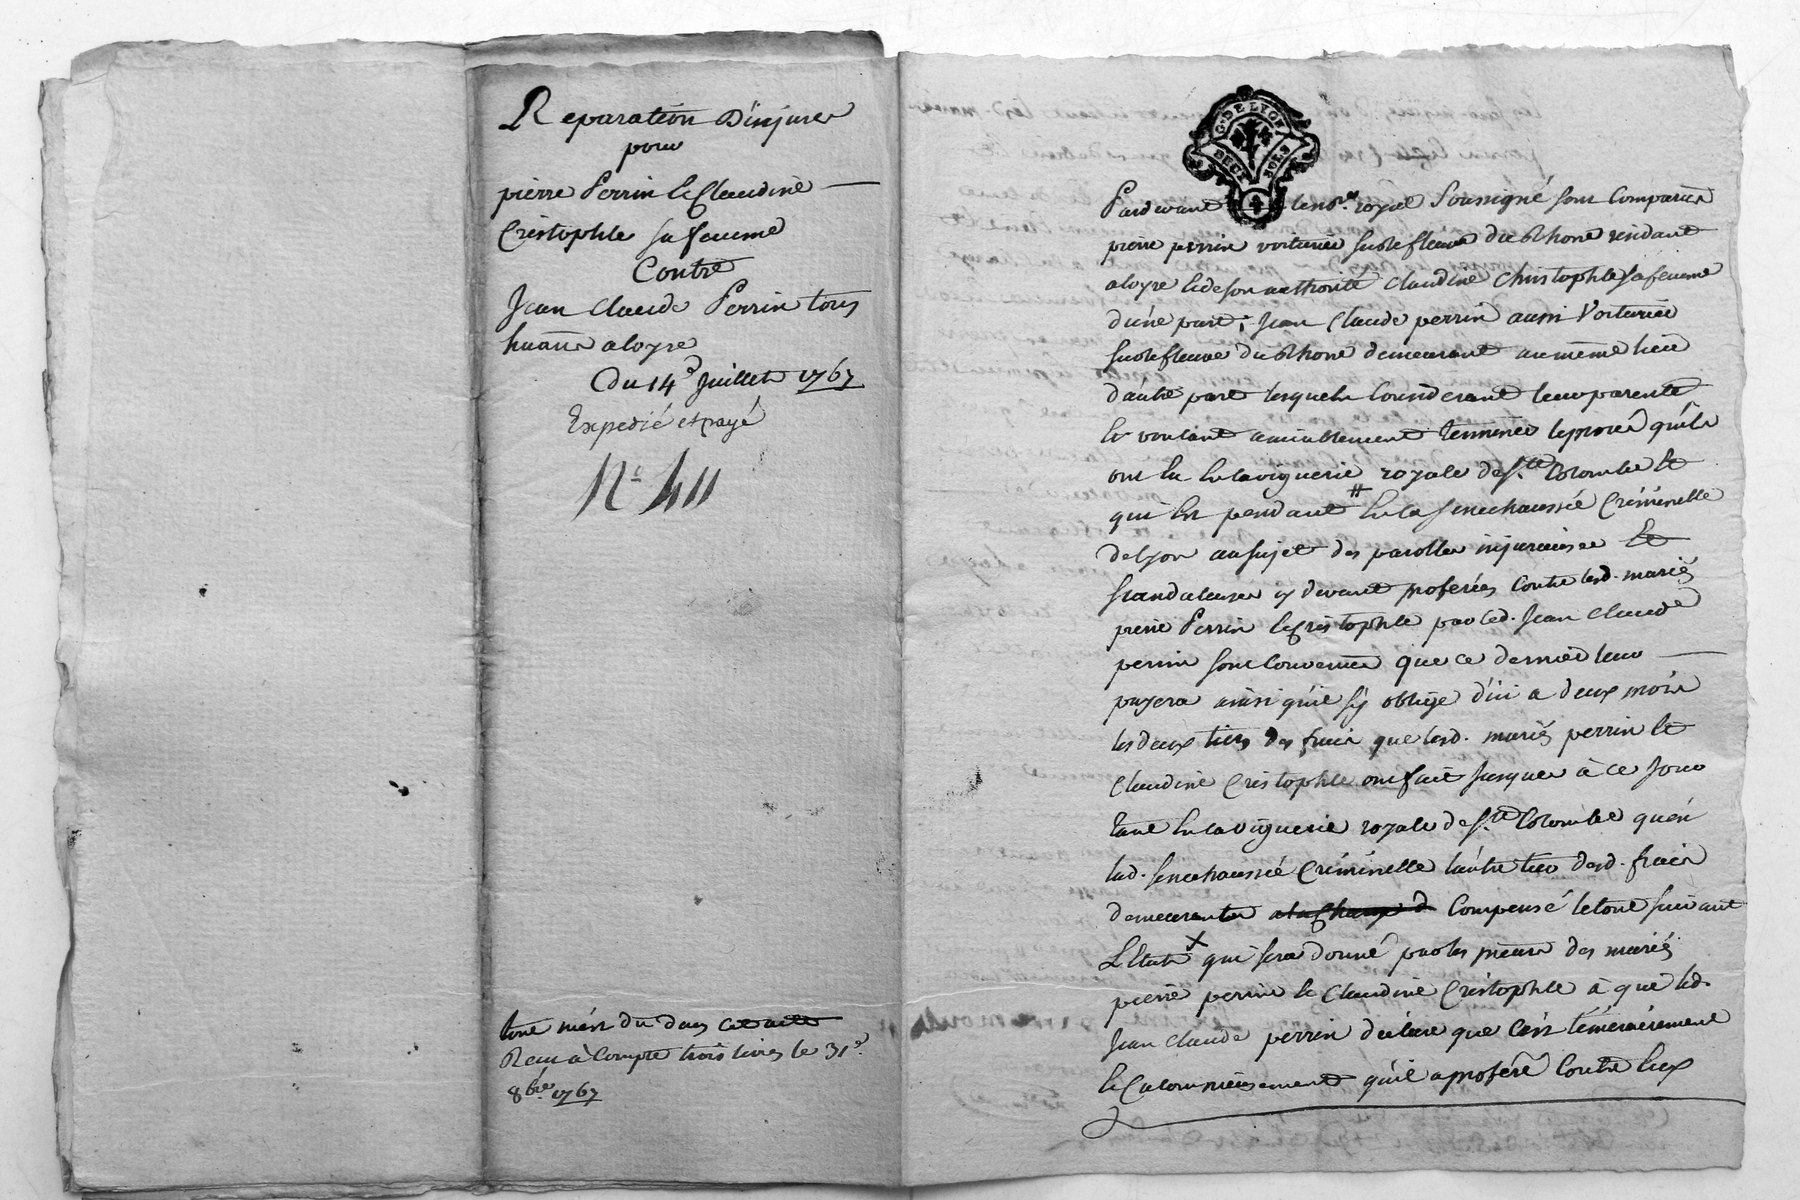 Reparation D'injures
pour
pierre Perrin & Claudine
Cristophle sa femme
Contre
Jean Claude Perrin tous
a loyre
Du 14e Juillet 1767
Expedié et payé
No 411
Recu à Compte trois livres le 31e
8bre 1767
G. DE LYON
DEUX SOLS
4
Pardevant le nore royal soussigné sont comparus
pierre perrin voiturier sur le fleuve du Rhone résidant
a loyre & de son authorité Claudine Christophle sa femme
d'une part; Jean Claude perrin aussi Voiturier
sur le fleuve du Rhone demeurant au meme lieu
d'autre part lesquels Considerant leur parenté
& voulant amiablement terminer le procès qu'ils
ont eu en la viguerie royale de Ste Colombe &
qui est pendant en la senechaussée Criminelle
de Lyon au sujet des parolles injurieuses &
scandaleuses cy devant proferées contre lesd. mariés
pierre Perrin & Cristophle par led. Jean Claude
perrin sont Convenus que ce dernier leur
payera ainsi qu'il s'y oblige d'ici a deux mois
les deux tiers des frais que lesd. mariés perrin &
Claudine Cristophle ont fait jusques à ce jour
tant en la viguerie royale de Ste Colombe qu'en
lad. senechaussée Criminelle l'autre tiers desd. frais
demeurant Compensé le tout suivant
L'Etat qui sera donné par les mains des mariés
pierre perrin & Claudine Cristophle à quoi led.
Jean Claude perrin declare que c'est temerairement
& Calomnieusement qu'il a proferé Contre eux